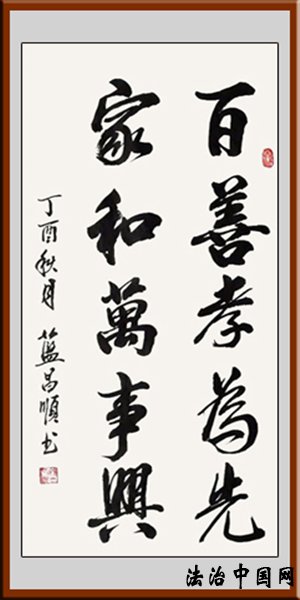 百善孝為先
家和萬事興
丁酉秋月 藍昌順书
法治中国网